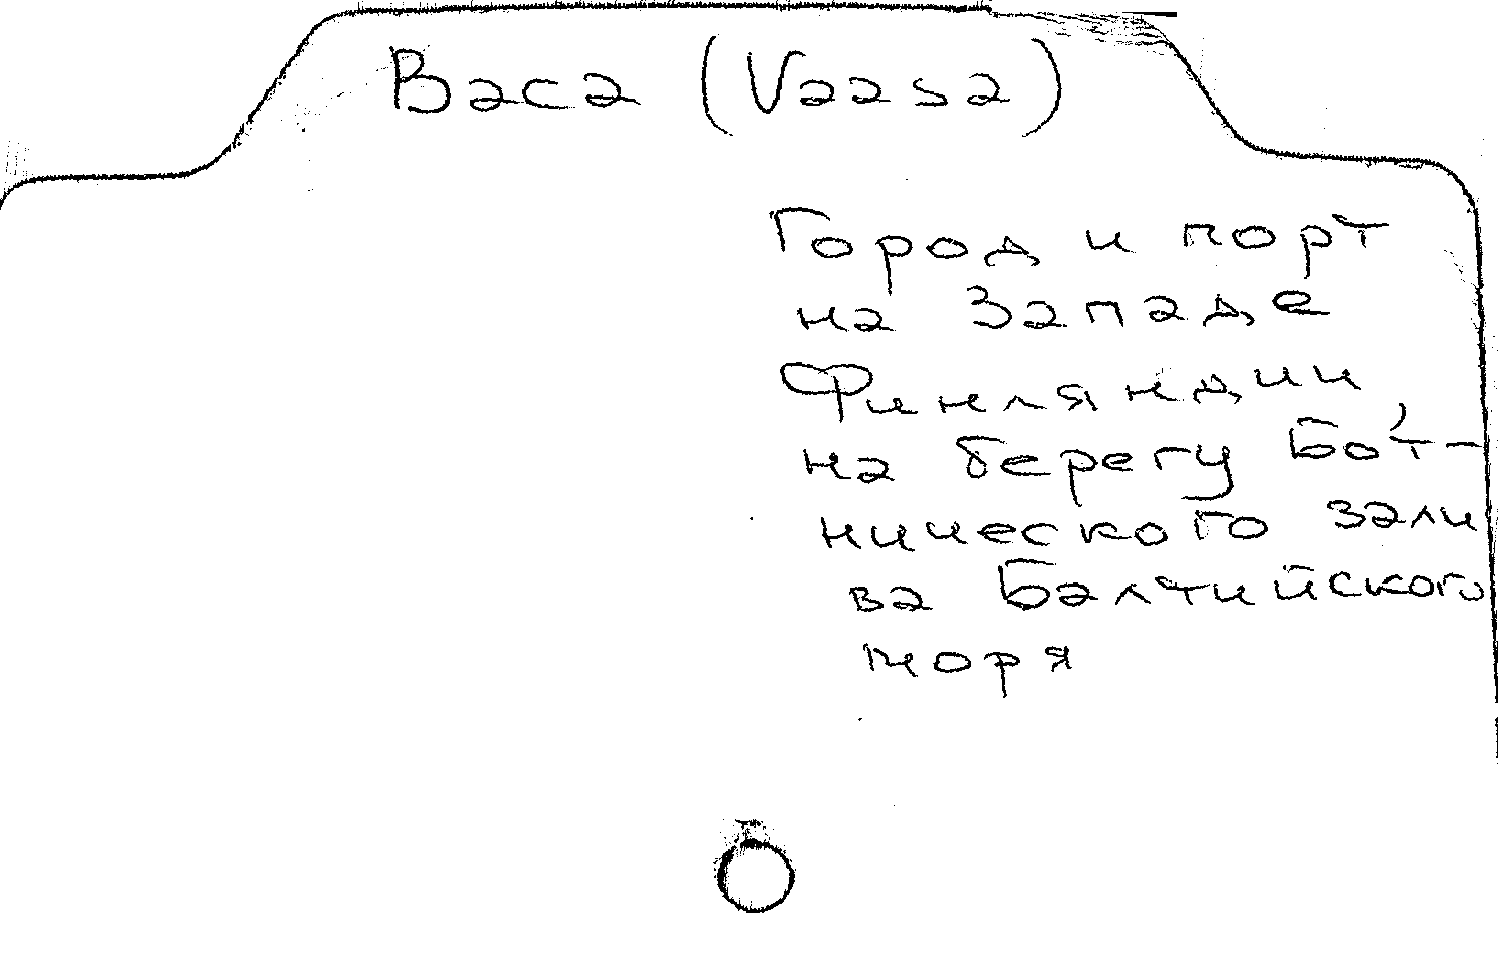 Васа (Vaasa)
Город и порт
на Западе
Финляндии,
на берегу Бот-
нического зали
ва Балтийского
моря